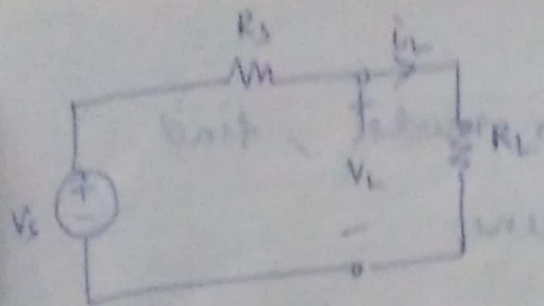 Rs
iL
RL
VL
Vs
+
-
-